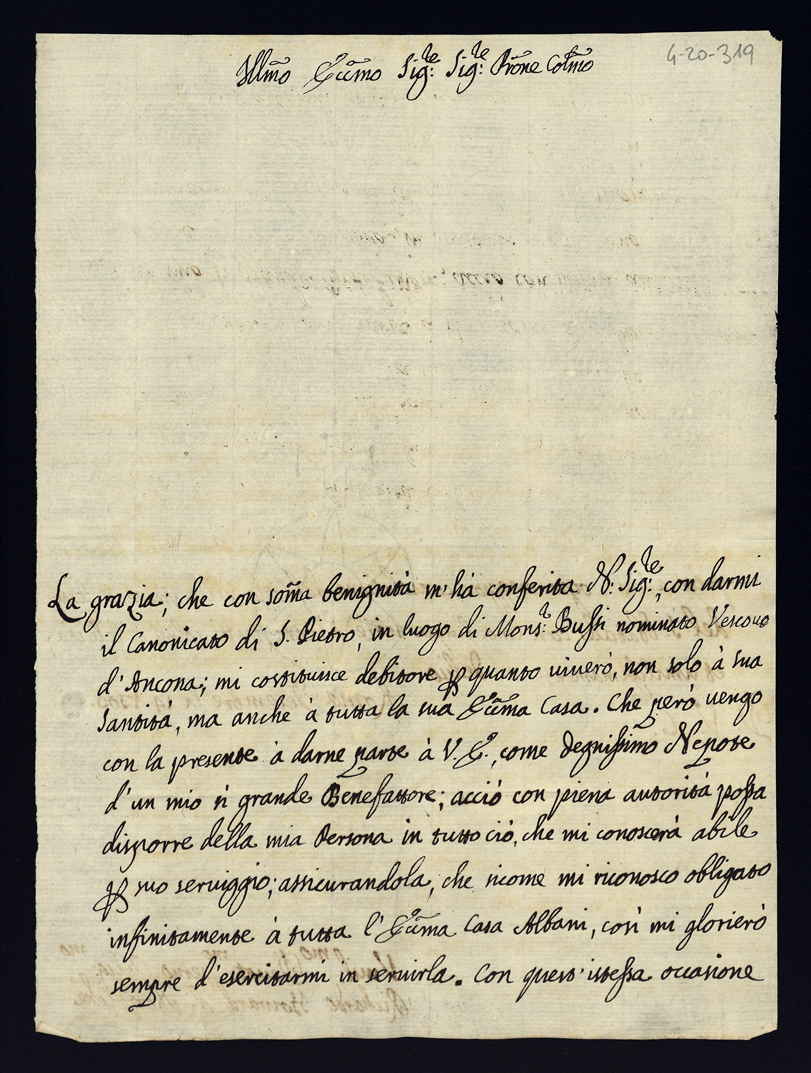 4-20-319
Illmo Eccmo Sig:re Sig:re Prone Colmo
La grazia; che con soma benignità m'hà conferita N: Sig:re, con darmi
il Canonicato di S. Pietro, in luogo di Mons:r Bussi nominato Vescovo
d'Ancona; mi costituisce debitore p quanto viverò, non solo à sua
Santità, ma anche à tutta la sua Eccma Casa. Che però vengo
con la presente à darne parte à V. E., come degnissimo Nepote
d'un mio sì grande Benefattore; acciò con piena autorità possa
disporre della mia Persona in tutto ciò, che mi conoscerà abile
p suo serviggio; assicurandola, che sicome mi riconosco obligato
infinitamente à tutta l'Eccma Casa Albani, così mi glorierò
sempre d'esercitarmi in servirla. Con quest'istessa occasione